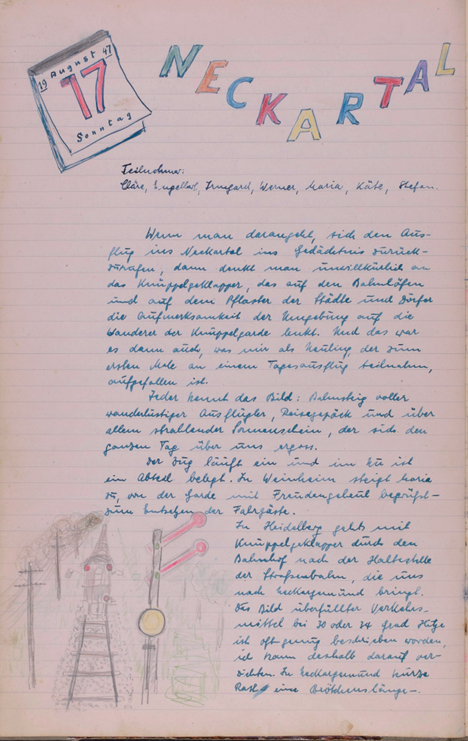 19 August 47
17
Sonntag
NECKARTAL
Teilnehmer:
Cläre, Engelbert, Irmgard, Werner, Maria, Käte, Stefan.
Wenn man darangeht, sich den Aus-
flug ins Neckartal ins Gedächtnis zurück-
zurufen, dann denkt man unwillkürlich an
das Knüppelgeklapper, das auf den Bahnhöfen
und auf dem Pflaster der Städte und Dörfer
die Aufmerksamkeit der Umgebung auf die
Wanderer der Knüppelgarde lenkt. Und das war
es dann auch, was mir als Neuling, der zum
ersten Male an einem Tagesausflug teilnahm,
aufgefallen ist.
Jeder kennt das Bild: Bahnsteig voller
wanderlustiger Ausflügler, Reisegepäck und über
allem strahlender Sonnenschein, der sich den
ganzen Tag über uns ergoss.
Der Zug läuft ein und im Nu ist
ein Abteil belegt. In Weinheim steigt Maria
zu, von der Garde mit Freudengeheul begrüsst-
zum Entsetzen der Fahrgäste.
In Heidelberg gehts mit
Knüppelgeklapper durch den
Bahnhof nach der Haltestelle
der Straßenbahn, die uns
nach Neckargemünd bringt.
Das Bild überfüllter Verkehrs-
mittel bei 30 oder 34 Grad Hitze
ist oft genug beschrieben worden,
ich kann deshalb darauf ver-
zichten. In Neckargemünd kurze
Rast, eine Brötchenslänge-.